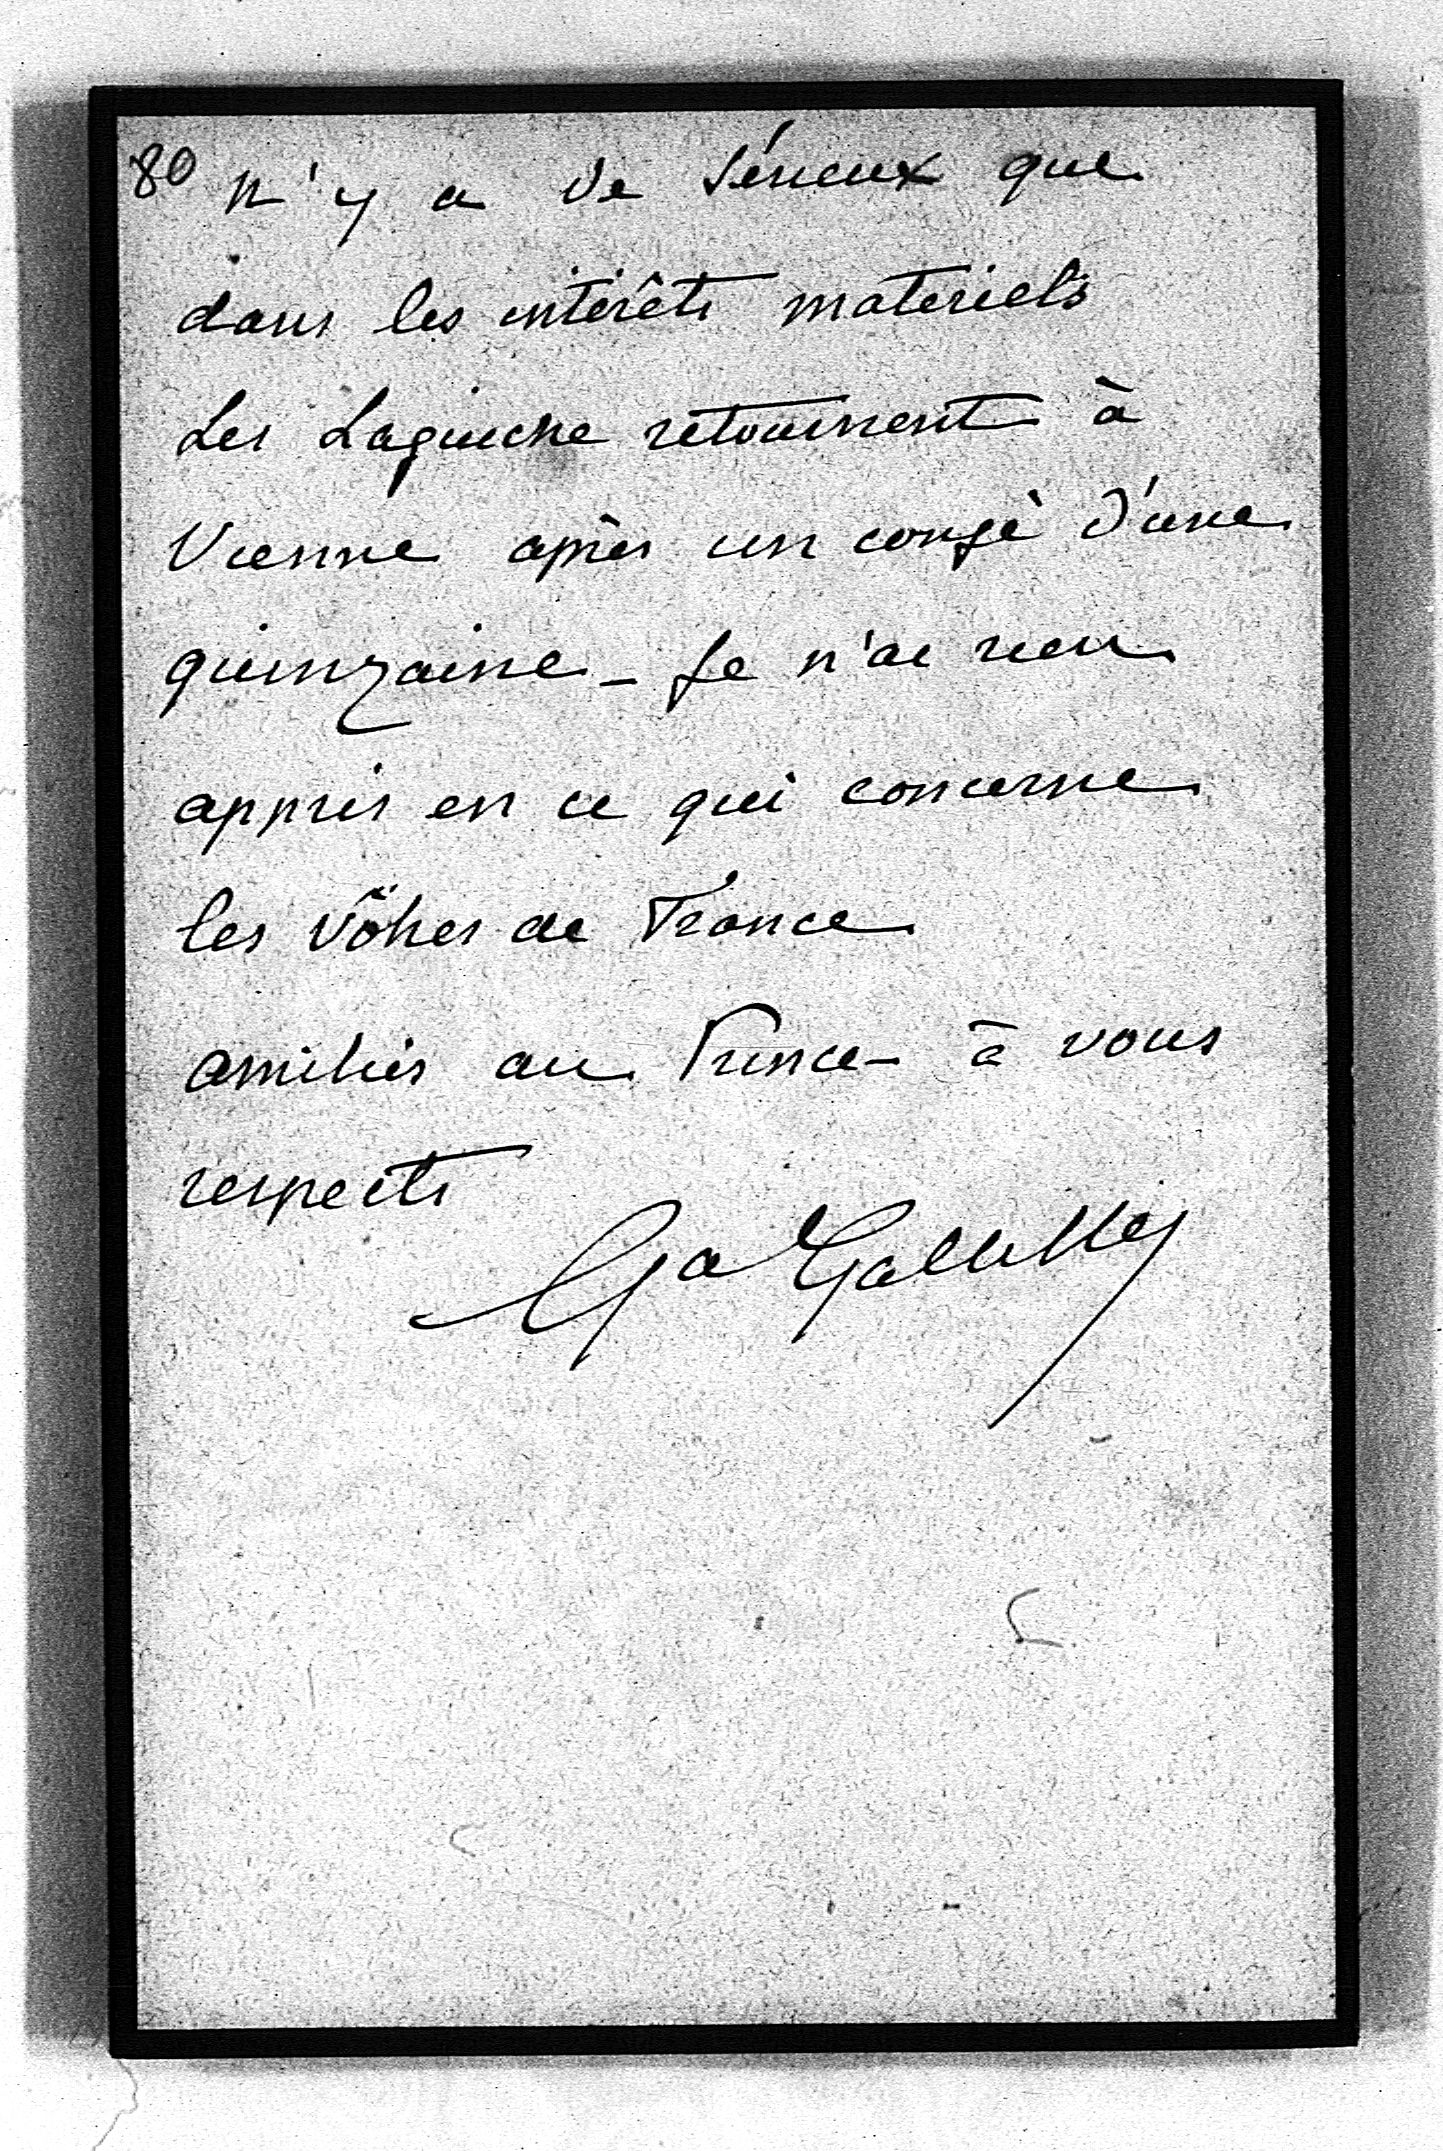 80 n'y a de sérieux que
dans les intérêts matériels
Les Laguiche retournent à
Vienne après un congé d'une
quinzaine _ Je n'ai rien
appris en ce qui concerne
les vôtres de France
amitiés au Prince _ à vous
respects
Ga Galliffet